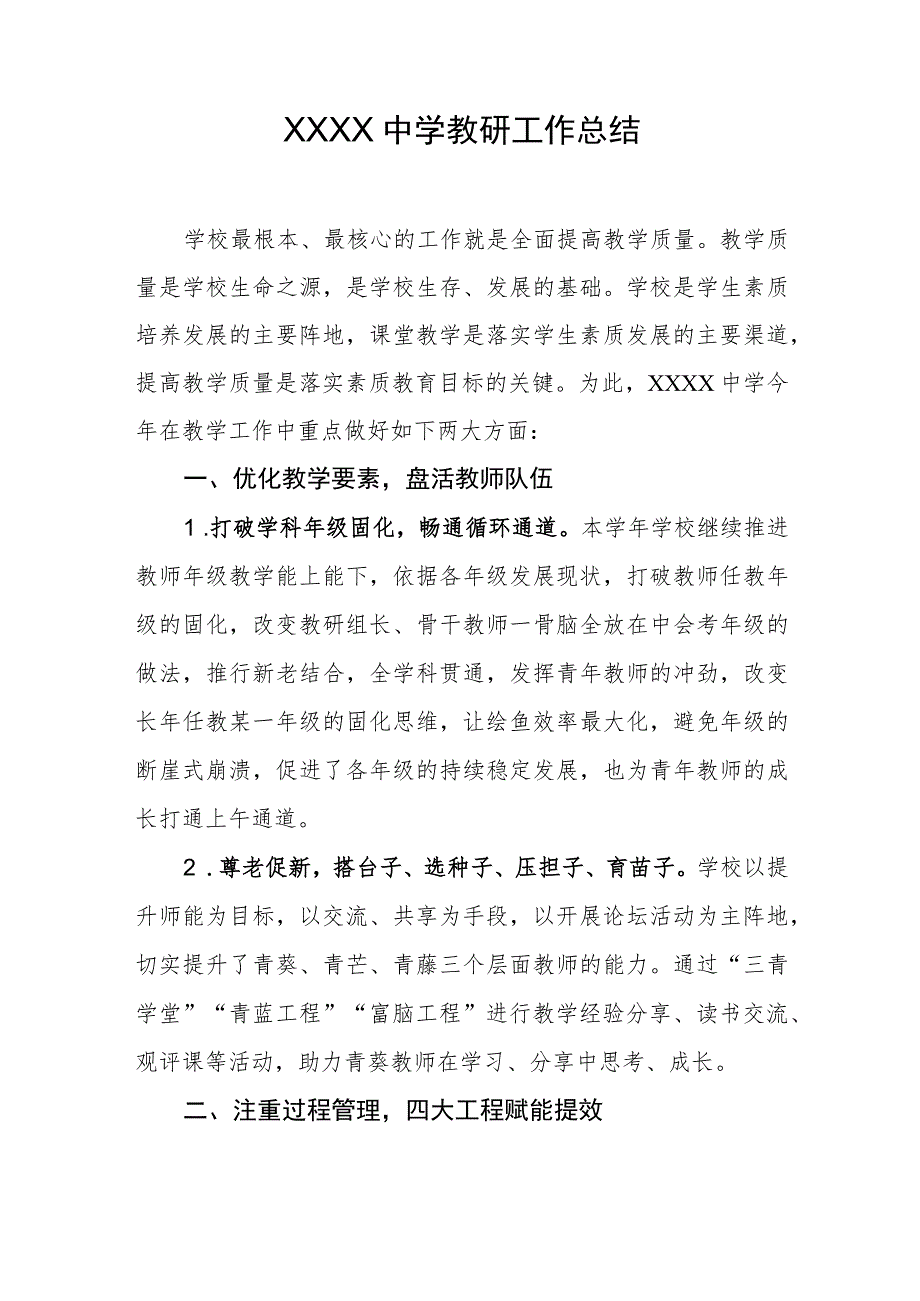 XXXX 中学教研工作总结
学校最根本、最核心的工作就是全面提高教学质量。教学质
量是学校生命之源，是学校生存、发展的基础。学校是学生素质
培养发展的主要阵地，课堂教学是落实学生素质发展的主要渠道，
提高教学质量是落实素质教育目标的关键。为此，XXXX 中学今
年在教学工作中重点做好如下两大方面：
一、优化教学要素，盘活教师队伍
1 .打破学科年级固化，畅通循环通道。本学年学校继续推进
教师年级教学能上能下，依据各年级发展现状，打破教师任教年
级的固化，改变教研组长、骨干教师一骨脑全放在中会考年级的
做法，推行新老结合，全学科贯通，发挥青年教师的冲劲，改变
长年任教某一年级的固化思维，让绘鱼效率最大化，避免年级的
断崖式崩溃，促进了各年级的持续稳定发展，也为青年教师的成
长打通上午通道。
2 .尊老促新，搭台子、选种子、压担子、育苗子。学校以提
升师能为目标，以交流、共享为手段，以开展论坛活动为主阵地，
切实提升了青葵、青芒、青藤三个层面教师的能力。通过“三青
学堂”“青蓝工程”“富脑工程”进行教学经验分享、读书交流、
观评课等活动，助力青葵教师在学习、分享中思考、成长。
二、注重过程管理，四大工程赋能提效